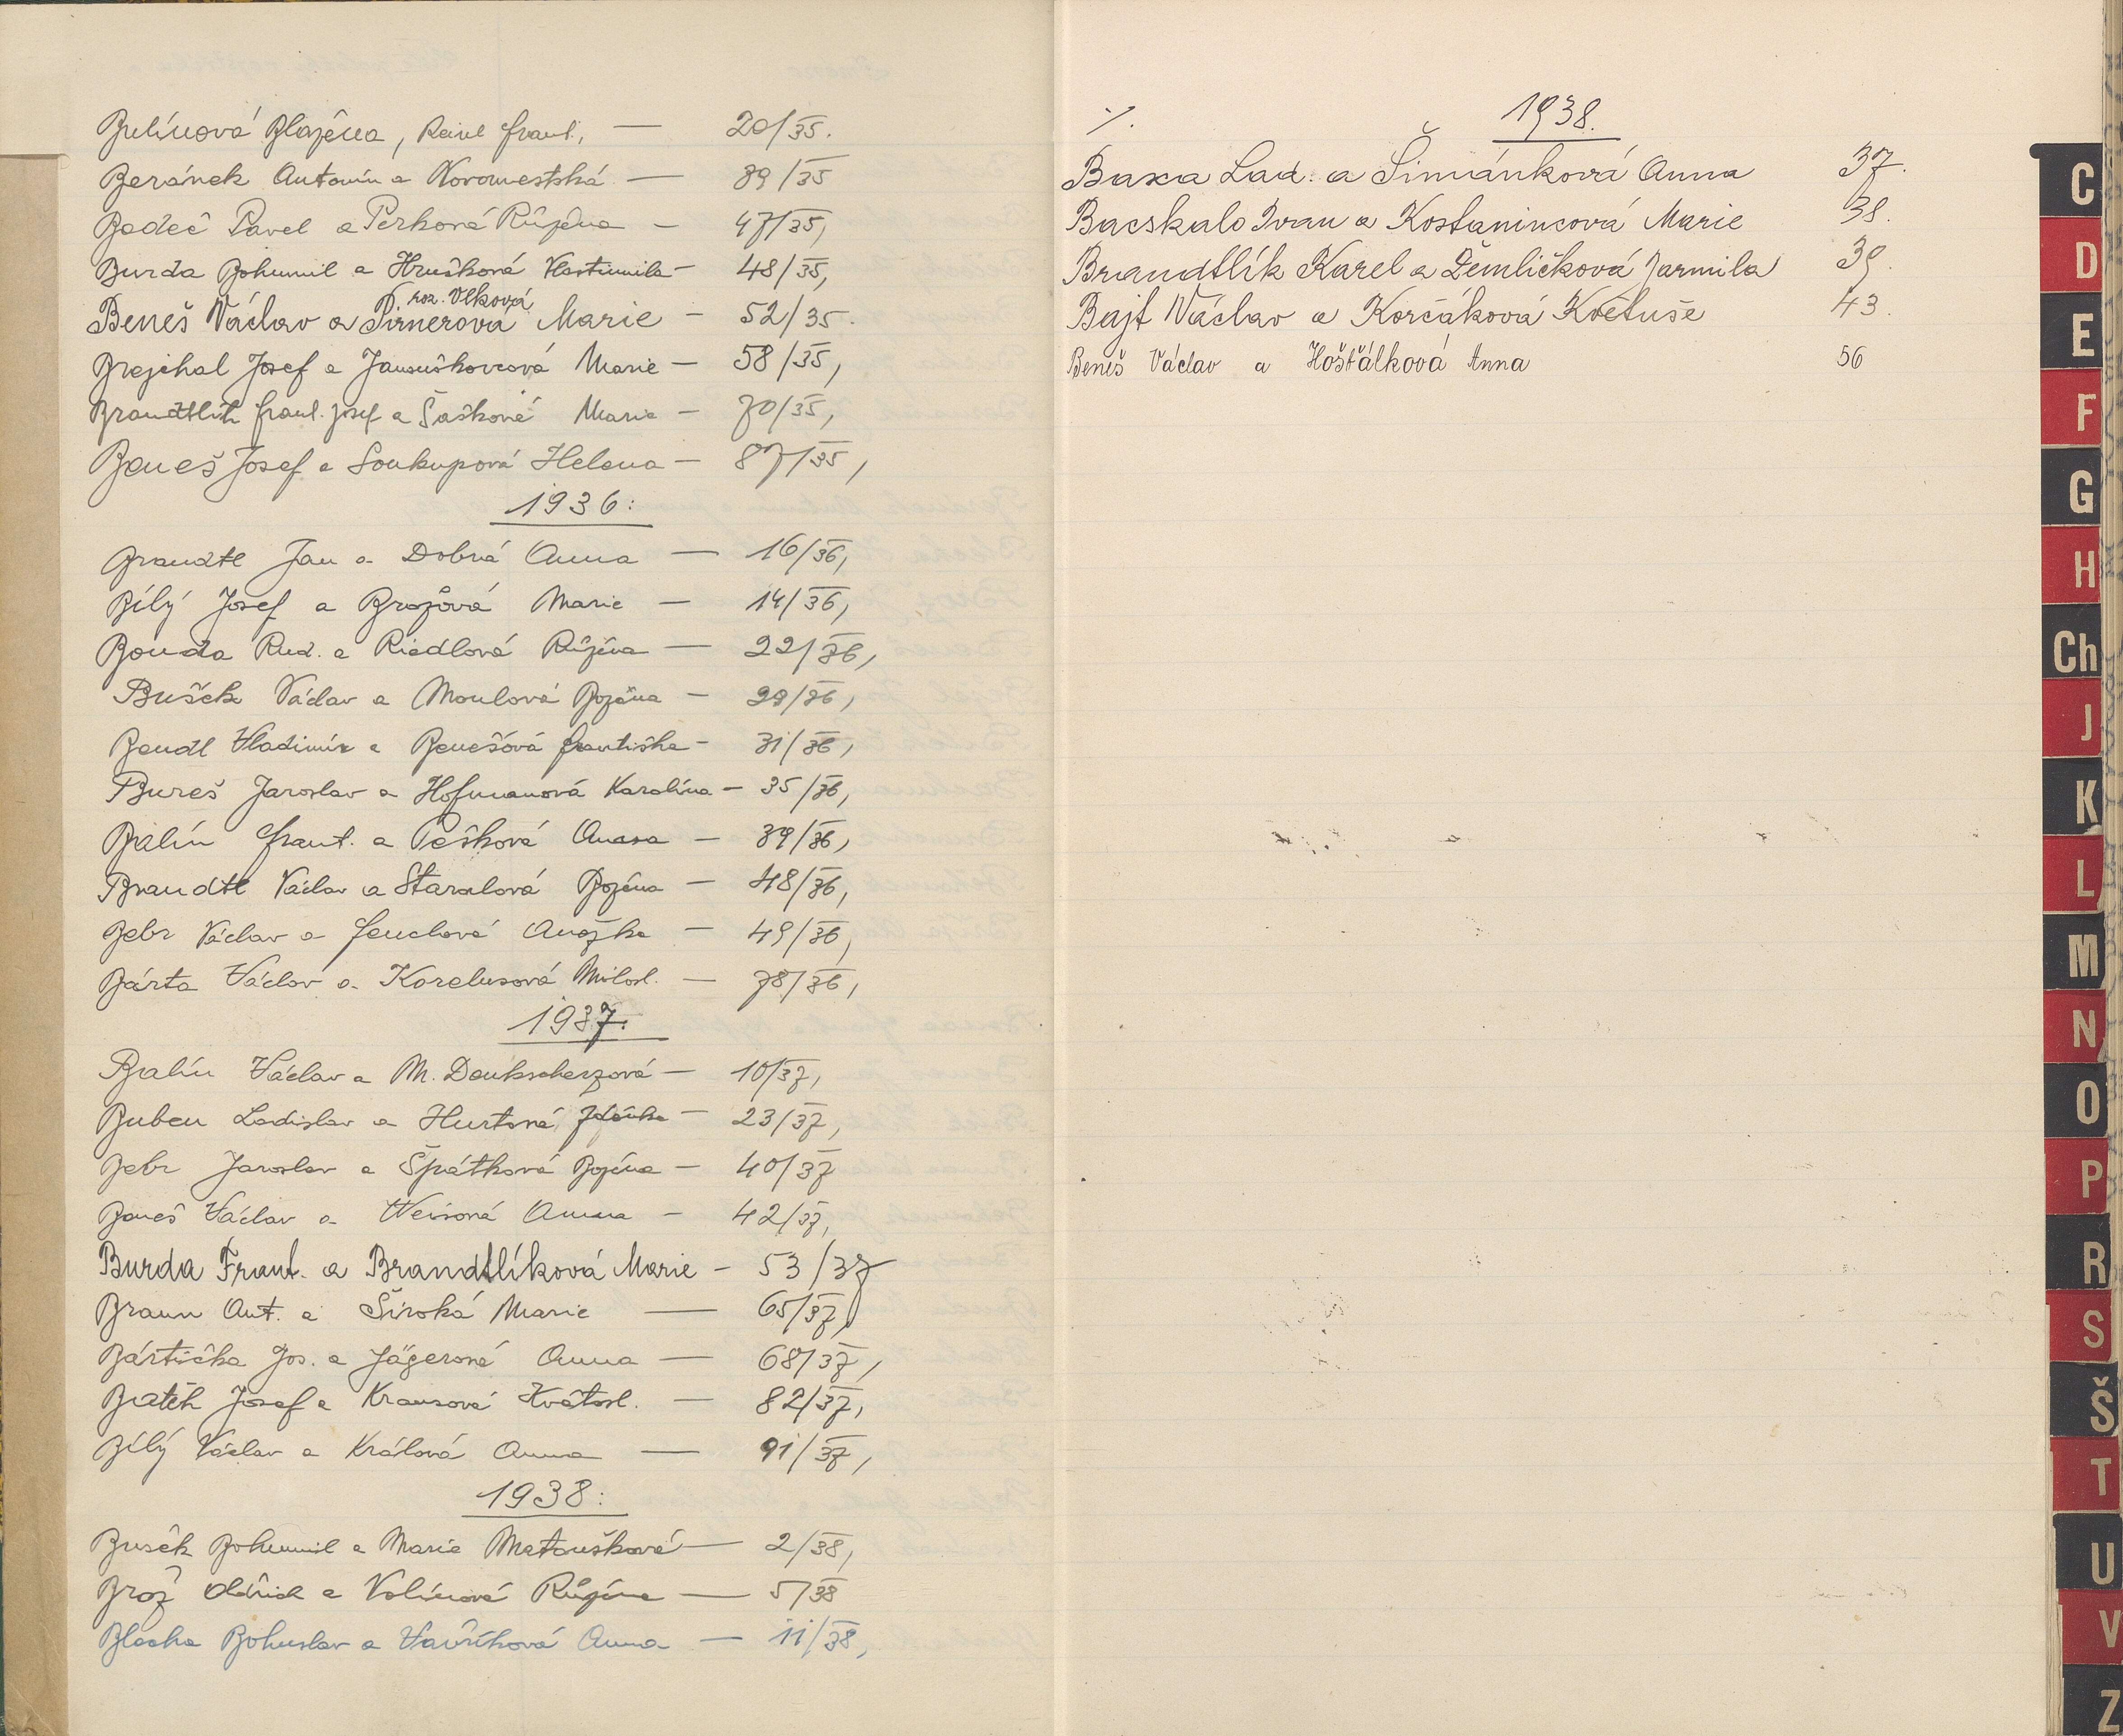 Bulínová Blažena, Reisl Frant. — 20/35.
Beránek Antonín a Novomestská — 39/35
Badeč Pavel a Perková Růžena — 47/35,
Burda Bohumil a Hrušková Vlastimila — 48/35,
roz. Vlková
Beneš Václav a Pirnerová Marie — 52/35.
Brejchal Josef a Janouškovcová Marie — 58/35,
Brandtlík Frant. Josef a Šašková Marie — 70/35,
Beneš Josef a Soukupová Helena — 87/35,
1936:
Brandtl Jan a Dobrá Anna — 16/36,
Bílý Josef a Brožová Marie — 14/36,
Bouda Rud. a Riedlová Růžena — 22/36,
Bušek Václav a Moulová Božena — 29/36,
Bendl Vladimír a Benešová Františka — 31/36,
Bureš Jaroslav a Hofmanová Karolína — 35/36,
Balín Frant. a Pešková Anna — 39/36,
Brandtl Václav a Staralová Božena — 48/36,
Bebr Václav a Fenclová Anežka — 49/36,
Bárta Václav a Karelusová Milosl. — 78/36,
1937:
Balín Václav a M. Denkscherzová — 10/37,
Buben Ladislav a Hurtová Zdeňka — 23/37,
Bebr Jaroslav a Špátková Božena — 40/37
Beneš Václav a Weisová Anna — 42/37,
Burda Frant. a Brandtlíková Marie — 53/37
Braun Ant. a Široká Marie — 65/37,
Bártička Jos. a Jägerová Anna — 68/37,
Josef a Krausová Květosl. — 82/37,
Bílý Václav a Králová Anna — 91/37,
1938:
Bušek Bohumil a Marie Matoušková — 2/38,
Brož Oldřich a Volínová Růžena — 5/38
Blacha Bohuslav a Vavříková Anna — 11/38,
1938.
Baxa Lad. a Šimánková Anna 37.
Bacskalo Ivan a Kostanincová Marie 38.
Brandtlík Karel a Žemličková Jarmila 39.
Bajt Václav a Korčáková Květuše 43.
Beneš Václav a Hošťálková Anna 56
C
D
E
F
G
H
Ch
J
K
L
M
N
O
P
R
S
Š
T
U
V
Z